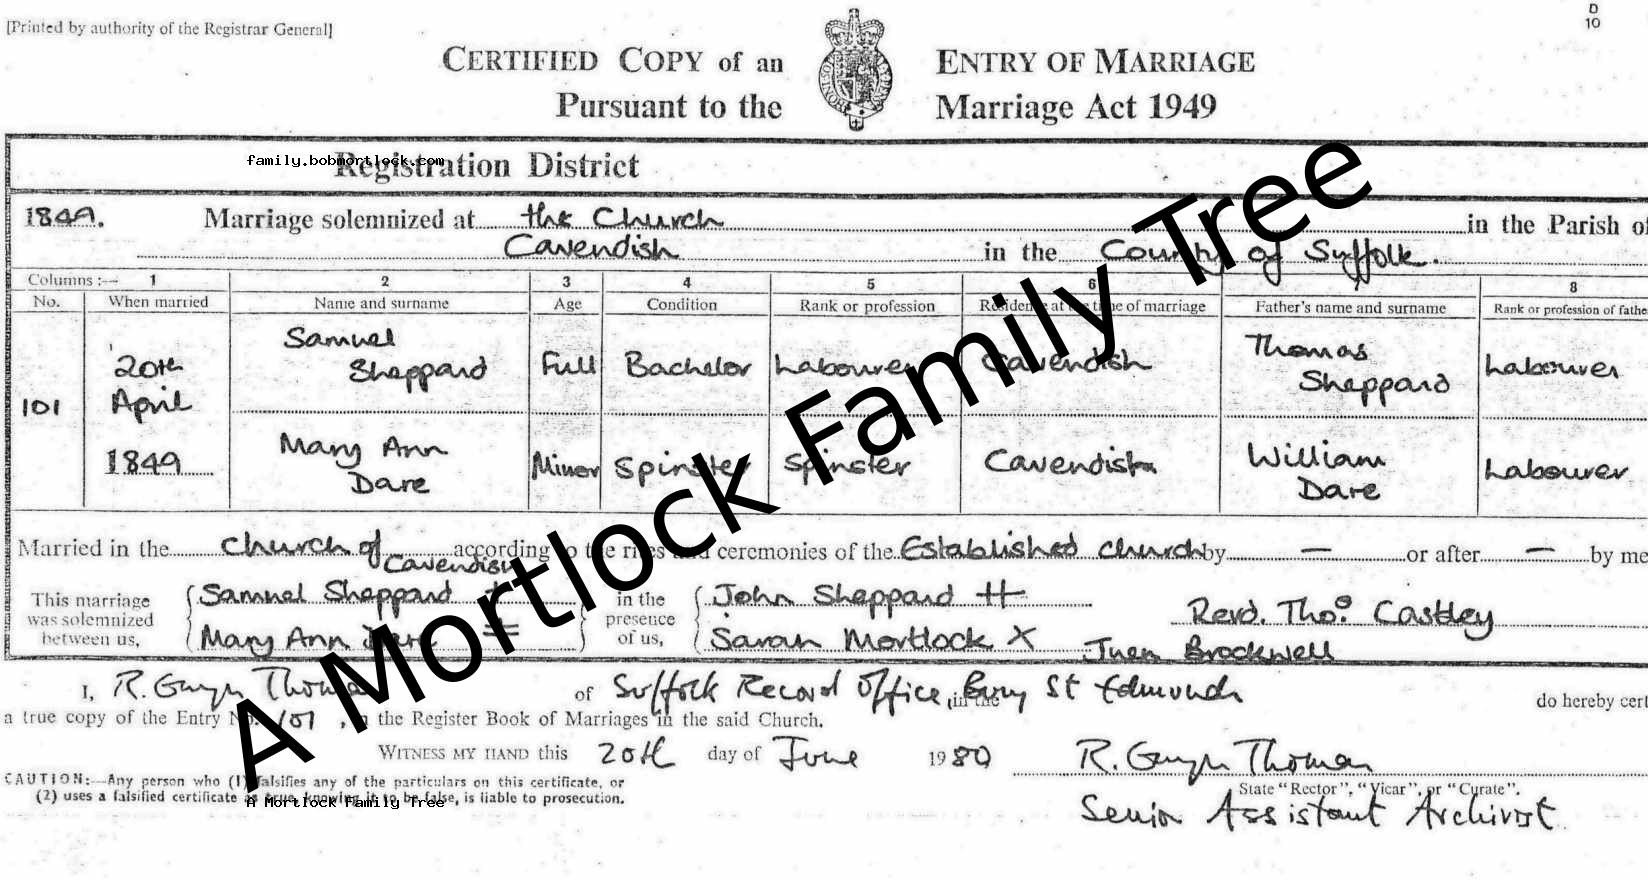 [Printed by authority of the Registrar General]
D
10
CERTIFIED COPY of an ENTRY OF MARRIAGE
Pursuant to the Marriage Act 1949
family.bobmortlock.com
Registration District
1849. Marriage solemnized at the Church in the Parish of
Cavendish in the County of Suffolk.
Columns :— 1 2 3 4 5 6 8
No. When married Name and surname Age Condition Rank or profession Residence at the time of marriage Father's name and surname Rank or profession of fathe
101 20th April 1849 Samuel Sheppard Full Bachelor Labourer Cavendish Thomas Sheppard Labourer
Mary Ann Dare Minor Spinster Spinster Cavendish William Dare Labourer
Married in the Church of Cavendish according to the rites and ceremonies of the Established Church by — or after — by me
This marriage was solemnized between us,
Samuel Sheppard
Mary Ann Dare
in the presence of us,
John Sheppard
Sarah Mortlock X
Brockwell
Revd. Thos Castley
I, R. Thomas of Suffolk Record Office, in the Bury St Edmunds do hereby cert
a true copy of the Entry No. 101, in the Register Book of Marriages in the said Church.
WITNESS MY HAND this 20th day of June 1980 R. Thomas
CAUTION:—Any person who (1) falsifies any of the particulars on this certificate, or
(2) uses a falsified certificate as true, knowing it to be false, is liable to prosecution.
State "Rector", "Vicar", or "Curate".
Senior Assistant Archivist
A Mortlock Family Tree
A Mortlock Family Tree